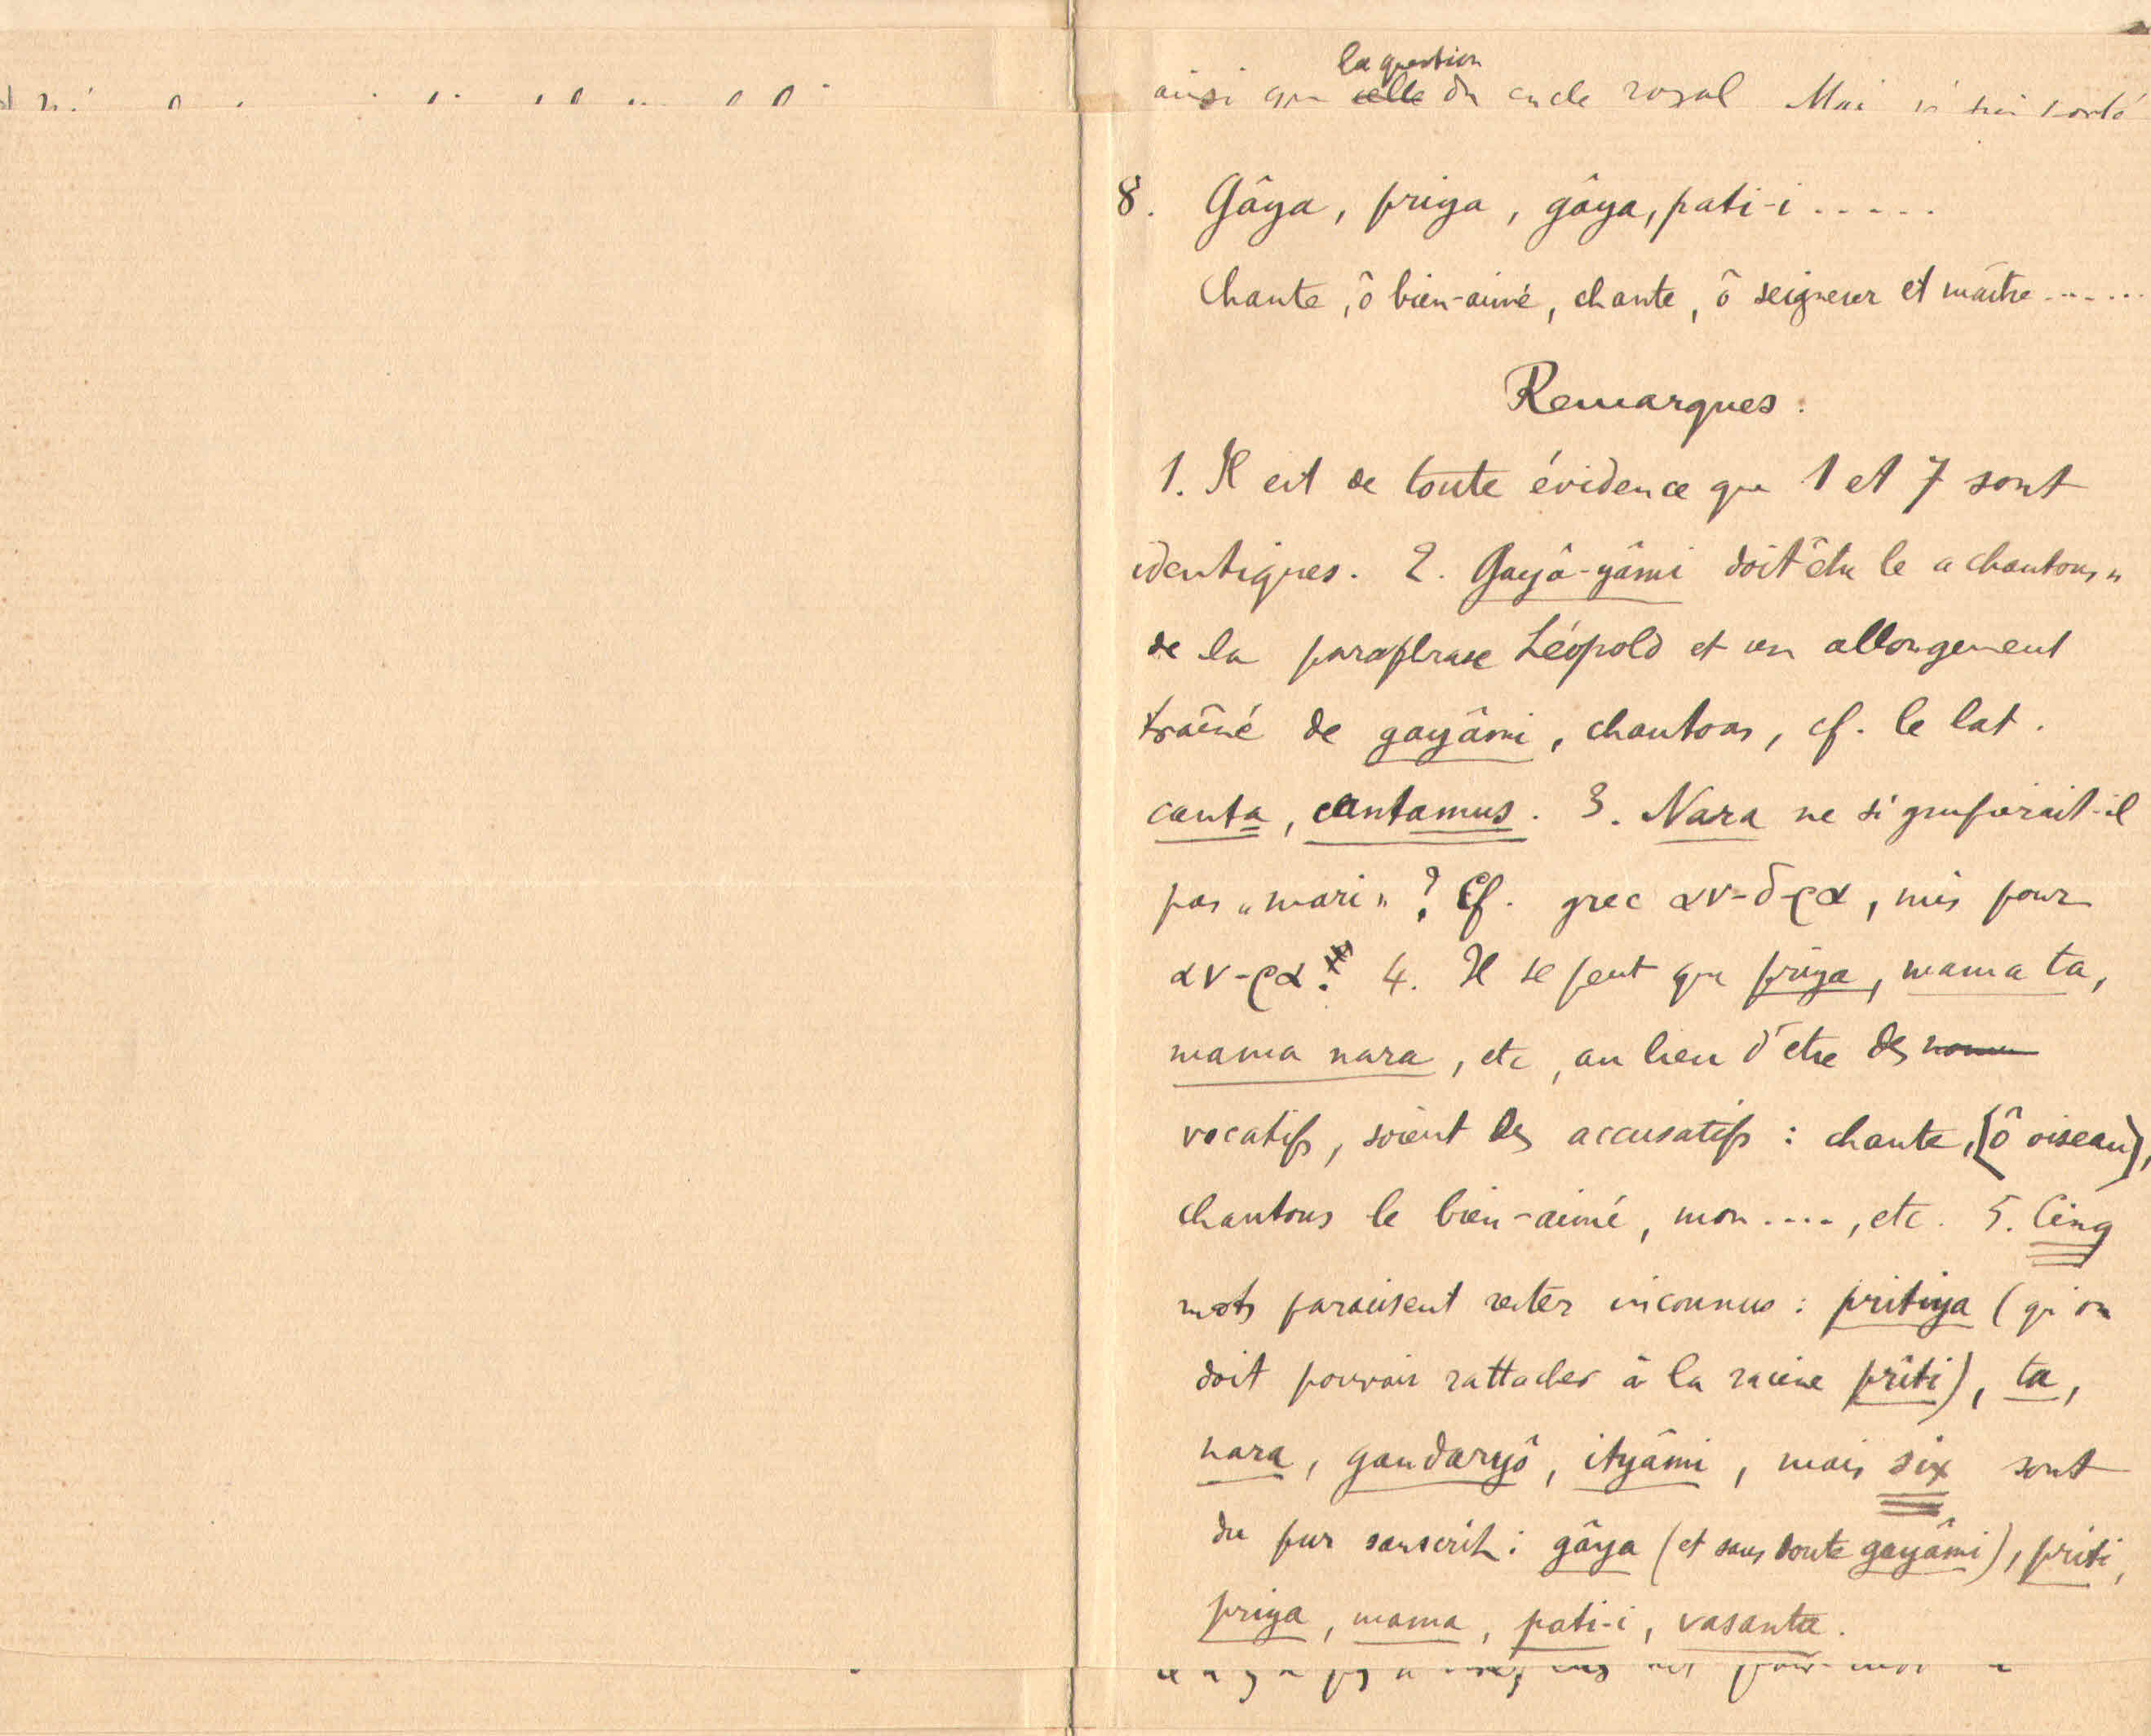 la question
ainsi que celle du cycle royal Mai
8. Gâya, priya, gâya, pati-i .....
Chante, ô bien-aimé, chante, ô seigneur et maître ......
Remarques.
1. Il est de toute évidence que 1 et 7 sont
identiques. 2. Gayâ-yâmi doit être le « chantons »
de la paraphrase Léopold et un allongement
traîné de gayâmi, chantons, cf. le lat.
canta, cantamus. 3. Nara ne signifierait-il
pas « mari » ? Cf. grec αν-δ-ρα, mis pour
αν-ρα. 4. Il se peut que priya, mama ta,
mama nara, etc, au lieu d'être des nomi
vocatifs, soient des accusatifs : chante, [ô oiseau],
chantons le bien-aimé, mon ...., etc. 5. Cinq
mots paraissent rester inconnus : pritiya (qu'on
doit pouvoir rattacher à la racine prîti), ta,
nara, gandaryô, ityâmi, mais six sont
du pur sanscrit : gâya (et sans doute gayâmi), priti,
priya, mama, pati-i, vasanta.